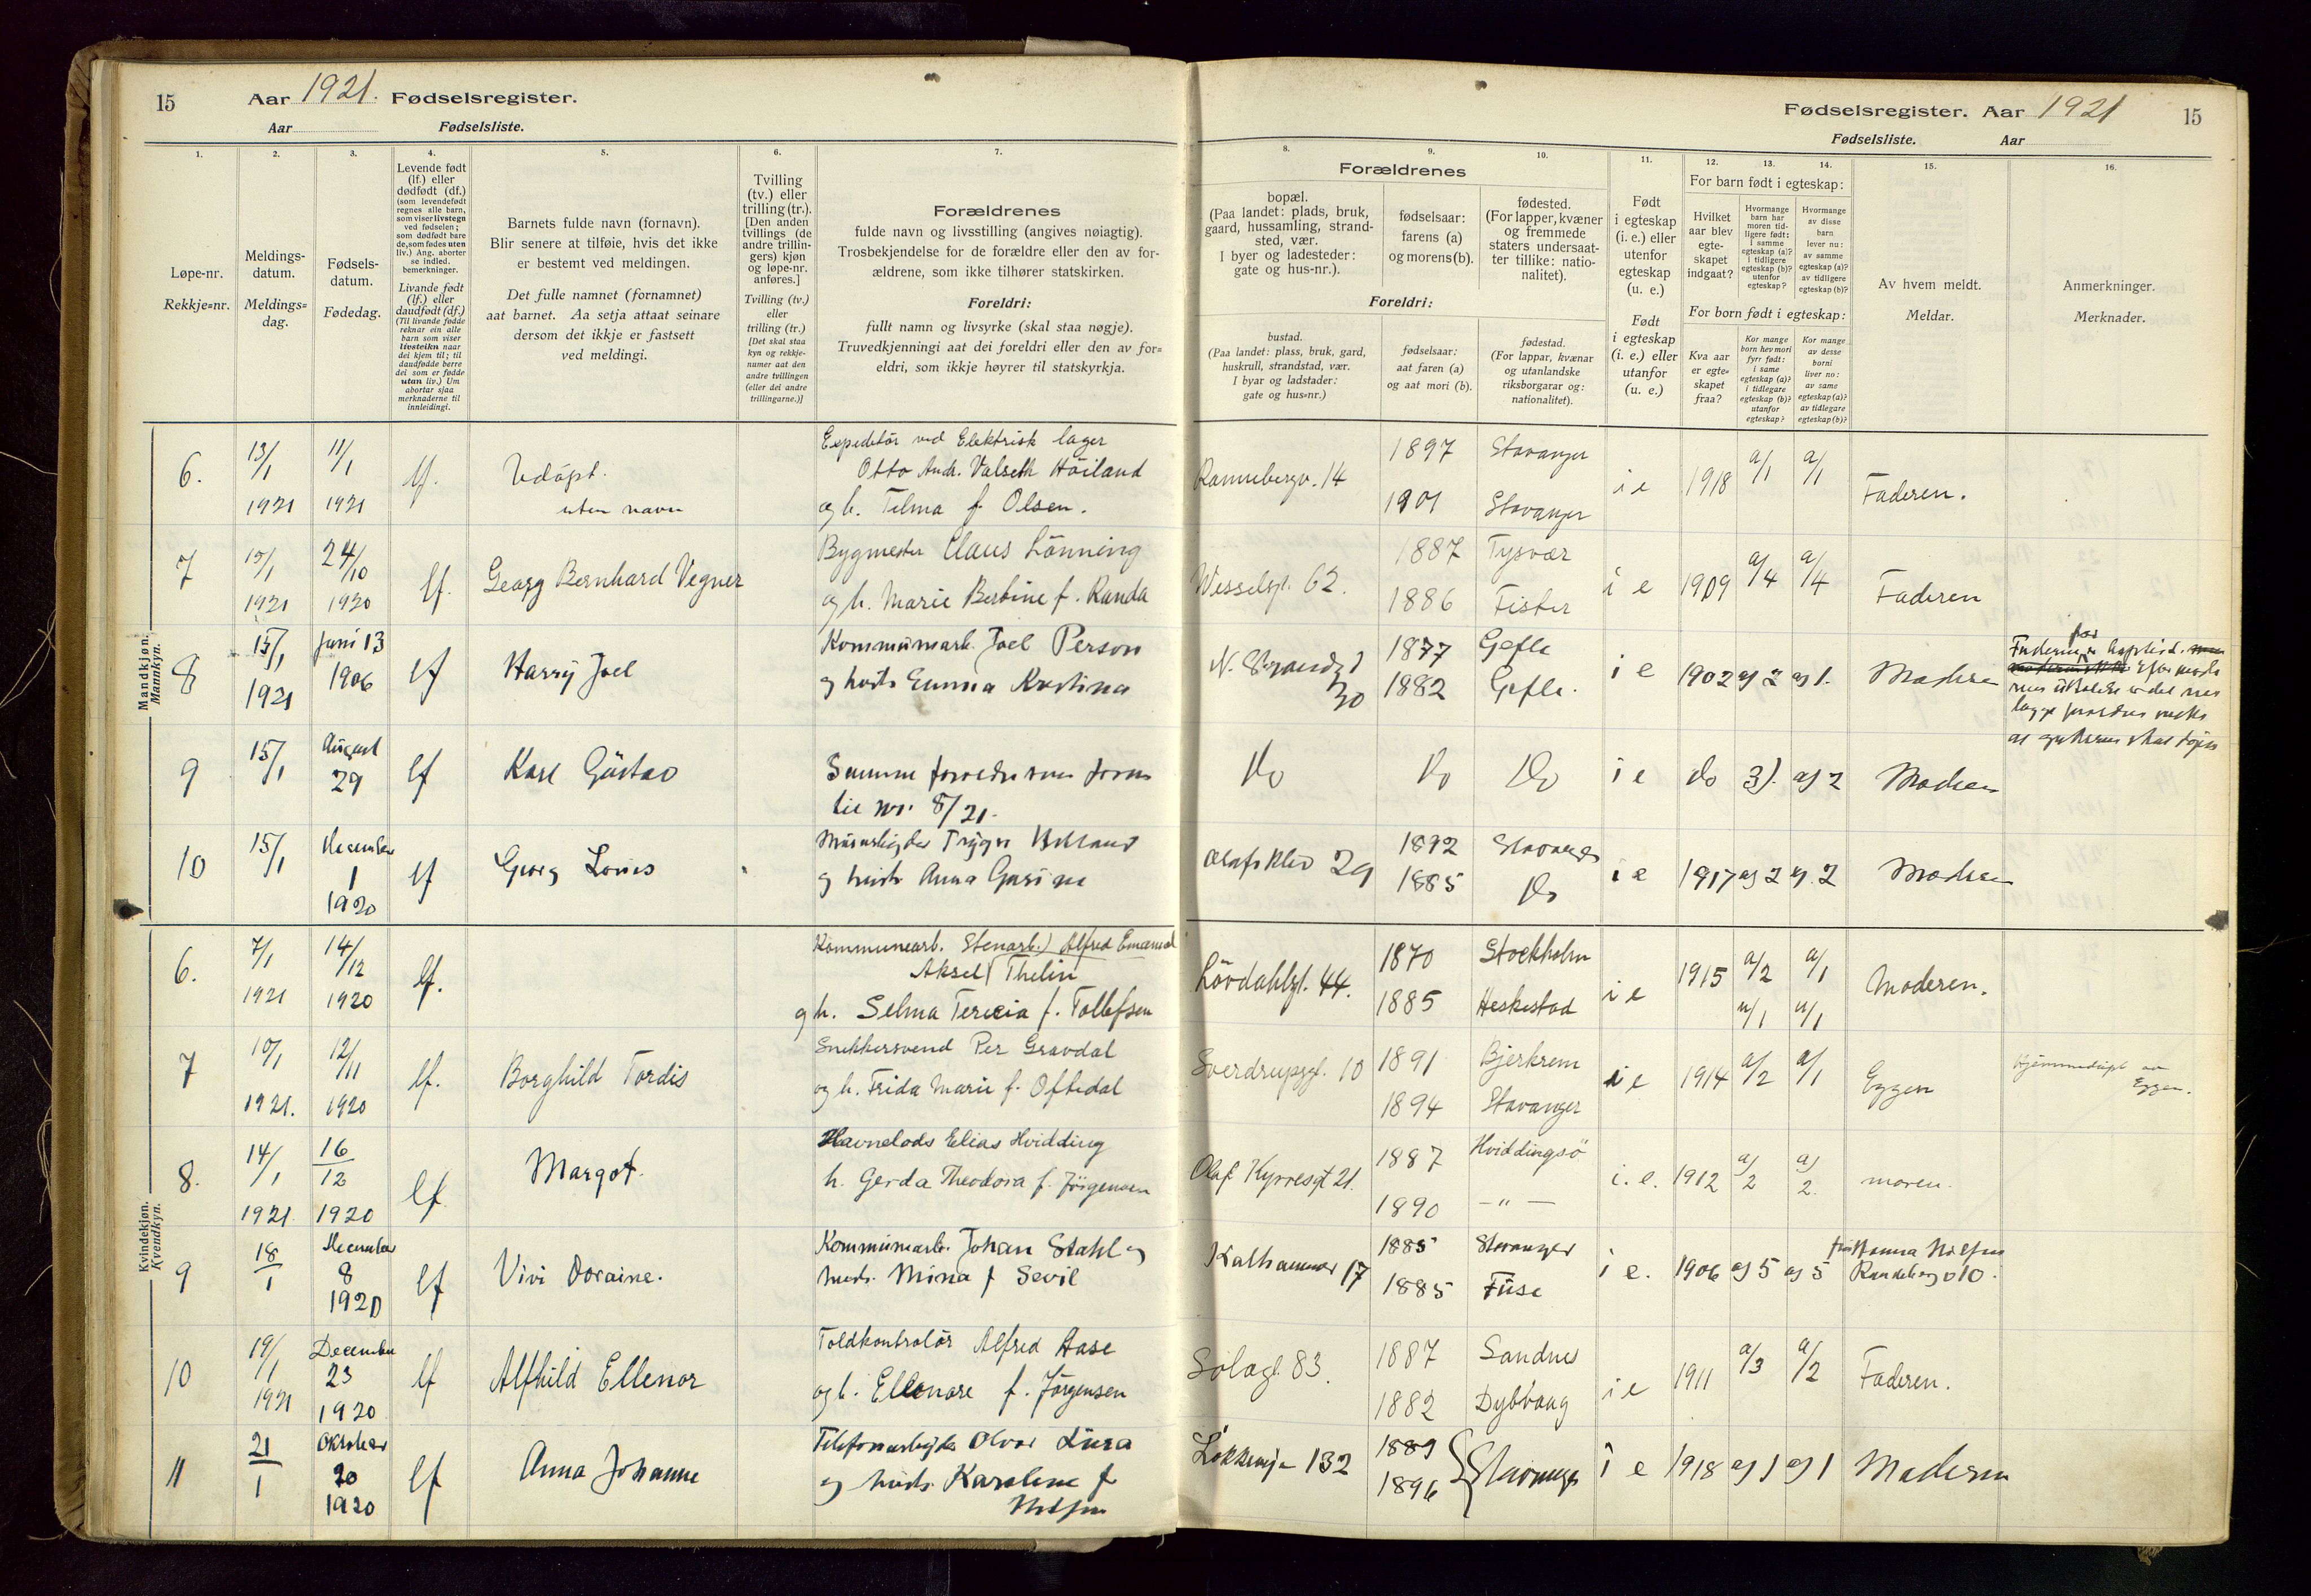 15 Aar 1921. Fødselsregister.
Aar Fødselsliste.
Fødselsregister. Aar 1921 15
Fødselsliste. Aar
1.
Løpe-nr.
Rekkje=nr.
2.
Meldings-
datum.
Meldings=
dag.
3.
Fødsels-
datum.
Fødedag.
4.
Levende født
(lf.) eller
dødfødt (df.)
(som levendefødt
regnes alle barn,
som viser livstegn
ved fødselen;
som dødfødt bare
de, som fødes uten
liv.) Ang. aborter
se indled.
bemerkninger.
Livande født
(lf.) eller
daudfødt (df.)
(Til livande fødde
reknar ein alle
barn som viser
livsteikn naar
dei kjem til; til
daudfødde berre
dei som er fødde
utan liv.) Um
abortar sjaa
merknaderne til
innleidingi.
5.
Barnets fulde navn (fornavn).
Blir senere at tilføie, hvis det ikke
er bestemt ved meldingen.
Det fulle namnet (fornamnet)
aat barnet. Aa setja attaat seinare
dersom det ikkje er fastsett
ved meldingi.
6.
Tvilling
(tv.) eller
trilling (tr.).
[Den anden
tvillings (de
andre trillin-
gers) kjøn
og løpe-nr.
anføres.]
Tvilling (tv.)
eller
trilling (tr.)
[Det skal staa
kyn og rekkje-
numer aat den
andre tvillingen
(eller dei andre
trillingarne.)]
7.
Forældrenes
fulde navn og livsstilling (angives nøiagtig).
Trosbekjendelse for de forældre eller den av for-
ældrene, som ikke tilhører statskirken.
Foreldri:
fullt namn og livsyrke (skal staa nøgje).
Truvedkjenningi aat dei foreldri eller den av for=
eldri, som ikkje høyrer til statskyrkja.
Forældrenes
8.
bopæl.
(Paa landet: plads, bruk,
gaard, hussamling, strand-
sted, vær.
I byer og ladesteder:
gate og hus-nr.).
9.
fødselsaar:
farens (a)
og morens (b).
10.
fødested.
(For lapper, kvæner
og fremmede
staters undersaat-
ter tillike: natio-
nalitet).
Foreldri:
bustad.
(Paa landet: plass, bruk, gard,
huskrull, strandstad, vær.
I byar og ladstader:
gate og hus=nr.)
fødselsaar:
aat faren (a)
og aat mori (b).
fødestad.
(For lappar, kvænar
og utanlandske
riksborgarar og:
nationalitet).
11.
Født
i egteskap
(i. e.) eller
utenfor
egteskap
(u. e.)
Født
i egteskap
(i. e.) eller
utanfor
(u. e.)
12. 13. 14.
For barn født i egteskap:
Hvilket
aar blev
egte-
skapet
indgaat?
Hvormange
barn har
moren tid-
ligere født:
i samme
egteskap (a)?
i tidligere
egteskap (b)?
utenfor
egteskap?
Hvormange
av disse
barn
lever nu:
av samme
egteskap (a)?
av tidligere
egteskap (b)?
For born født i egteskap:
Kva aar
er egte=
skapet
fraa?
Kor mange
born hev mori
fyrr født:
i same
egteskap (a)?
i tidlegare
egteskap (b)?
utanfor
egteskap?
Kor mange
av desse
borni
liver no:
av same
egteskap (a)?
av tidlegare
egteskap (b)?
15.
Av hvem meldt.
Meldar.
16.
Anmerkninger.
Merknader.
Mandkjøn.
Mannkyn.
6. 13/1 1921 11/1 1921 lf. Udøpt.
uten navn
Expeditör ved Elektrisk lager
Otto Andr. Valseth Höiland
og h. Telma f. Olsen.
Rannebergv. 14 1897 Stavanger
1901 Stavanger
i e 1918 a/1 a/1 Faderen.
7 15/1 1921 24/10 1920 lf. Georg Bernhard Vegner
Bygmester Claus Lönning
og h. Marie Bertine f. Randa
Wesselsgt. 62. 1887 Tysvær
1886 Fister
i e 1909 a/4 a/4 Faderen
8 15/1 1921 Juni 13 1906 lf Harry Joel
Kommunearb. Joel Person
og hustr Emma Kristina
N. Strandgt 30 1877 Gefle
1882 Gefle.
i e 1902 a) 2 a) 1. Moderen
9 15/1 August 29 lf Karl Gustav
Samme forældre som
til nr. 8/21.
Do Do Do i e do 3). a) 2 Moderen
10 15/1 December 1 1920 lf Georg Louis
Murarbeider Trygve
og hustr Anna Gurine
Olafsklev 29 1892 Stavanger
1885 Do
i e 1917 a) 2 a) 2 Moderen
Kvindekjøn.
Kvendkyn.
6. 7/1 1921 14/12 1920 lf.
Kommunearb. Stenarb.) Alfred Emanuel
Aksel Thelin
og h. Selma Tereсia f. Tollefsen
Lövdahlsgt. 44. 1870 Stockholm
1885 Heskestad
i e 1915 a/2 a/1 Moderen.
u/1 u/1
7 10/1 1921. 12/11 1920 lf. Borghild Tordis
Snekkersvend Per Gravdal
og h. Frida Marie f. Oftedal
Sverdrupsgt. 10 1891 Bjerkrem
1894 Stavanger
i e 1914 a/2 a/1 Eggen Hjemmedöpt av
Eggen.
8. 14/1 1921 16/12 1920 lf Margot.
Havnelods Elias Hvidding
h. Gerda Theodora f. Jörgensen
Olaf Kyrresgt 21. 1887 Hviddingsö
1890 — " —
i. e. 1912 a/2 a/2. moren.
9 18/1 December 8 1920 lf Vivi Doraine.
Kommunearb. Johan Stahl og
hustr. Mina f Sevil
Kalhammer 17 1885 Stavanger
1885 Fuse
i e. 1906 a) 5 a) 5
10 19/1 1921 December 23 1920 lf Alfhild Ellenor
Toldkontrolör Alfred Aase
og h. Ellenore f. Jörgensen
Solagt. 83. 1887 Sandnes
1882 Dybvaag
i e 1911 a/3 a/2 Faderen.
11 21/1 Oktober 20 1920 lf Anna Johanne
Telefonarbeider Olvar Lura
og hustr. Karoline f
Nilsen
Lökkevn 132 1889
1896 Stavanger
i e 1918 a) 1 a) 1 Moderen